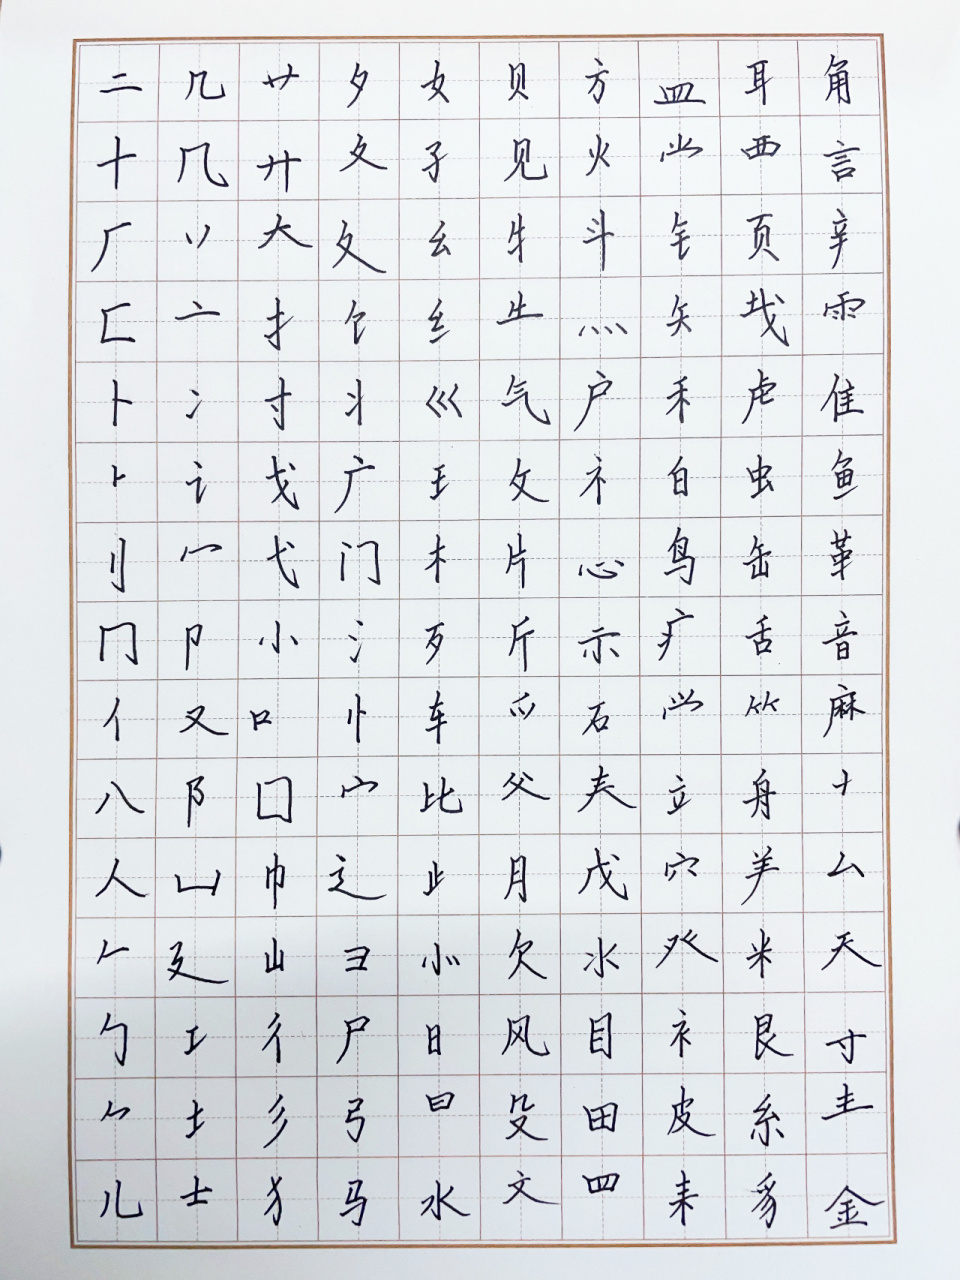 二 几 艹 夕 女 贝 方 皿 耳 角
十 几 廾 夂 孑 见 火 ⺌ 覀 言
厂 丷 大 夂 幺 牜 斗 钅 页 辛
匚 亠 扌 饣 纟 ⺧ 灬 矢 ⻗
卜 冫 寸 丬 巛 气 户 禾 虍 隹
⺊ 讠 戈 广 王 攵 礻 自 虫 鱼
刂 冖 弋 门 木 片 心 鸟 缶 革
冂 卩 小 氵 歹 斤 示 疒 舌 音
亻 又 口 忄 车 爫 石 𭕄 ⺮ 麻
八 阝 囗 宀 比 父 𡗗 立 舟 十
人 凵 巾 辶 止 月 戊 穴 羊 厶
𠂉 廴 山 彐 ⺗ 欠 氺 癶 米 天
勹 工 彳 尸 日 风 目 衤 艮 寸
⺈ 土 彡 弓 曰 殳 田 皮 糸 龶
儿 士 犭 马 水 文 罒 耒 豸 金